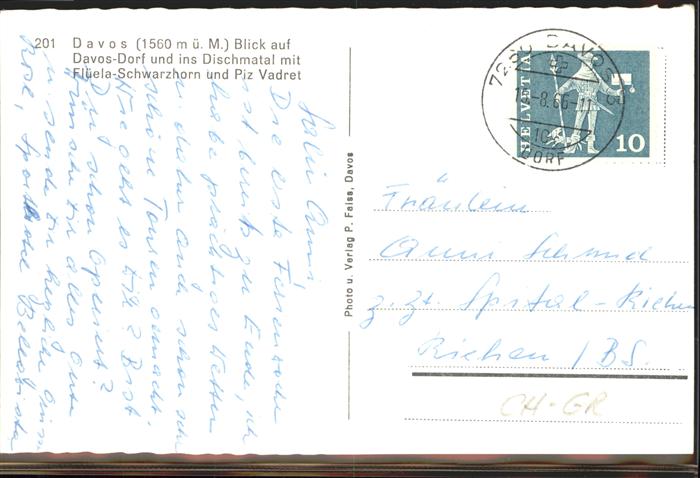 201 Davos (1560 m ü. M.) Blick auf
Davos-Dorf und ins Dischmatal mit
Flüela-Schwarzhorn und Piz Vadret
Anni!
Die erste Ferienwoche
ist bereits zu Ende, ich
habe prächtiges Wetter
u. dabei auch schon sehr
schöne Touren gemacht.
Wie geht es Dir? Bist
Du schon Operiert?
Wünsche Dir alles Gute
u. sende Dir herzliche Grüsse
Rösli, Sporthotel Bellavista
Photo u. Verlag P. Faiss, Davos
7260 DAVOS
-8.66-11
DORF
HELVETIA
10
Fräulein
Anni Schmid
z. Zt. Spital-Riehen
Riehen / BS.
CH-GR